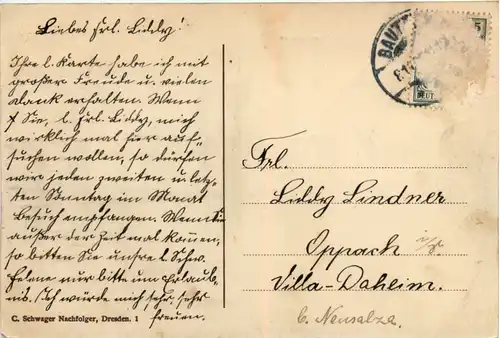 Liebes Frl. Liddy!
Ihre l. Karte habe ich mit
großer Freude u. vielen
Dank erhalten. Wenn
Sie, l. Frl. Liddy, mich
wirklich mal hier auf-
suchen wollen, so dürfen
wir jeden zweiten u. letz-
ten Sonntag im Monat
Besuch empfangen. Wenn Sie
außer der Zeit mal kommen,
so bitten Sie unsre l. Schw.
Helene nur bitte um Erlaub-
nis. Ich würde mich sehr, sehr
freuen.
C. Schwager Nachfolger, Dresden. 1
BAUTZEN
5
Frl.
Liddy Lindner
Oppach i/S.
Villa-Daheim.
b. Neusalza.